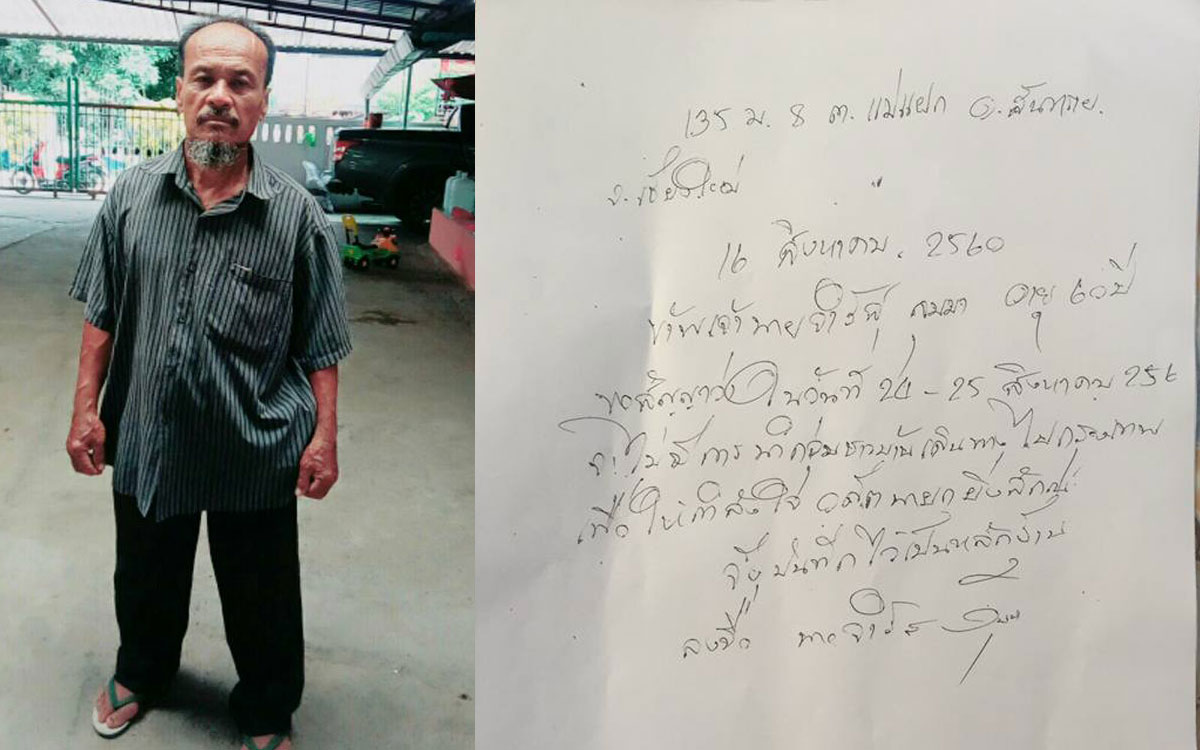 135 ม. 8 ต. แม่แฝก อ. สันทราย.
จ. เชียงใหม่
16 สิงหาคม. 2560
ข้าพเจ้า นาย จำรัส กุมมา อายุ 60 ปี
ขอสัญญาว่า ในวันที่ 24 - 25 สิงหาคม 256
จะไม่มีการนำกลุ่มชาวบ้านเดินทางไปกรุงเทพ
เพื่อให้กำลังใจ อดีตนายกยิ่งลักษณ์
จึงบันทึกไว้เป็นหลักฐาน
ลงชื่อ นาย จำรัส